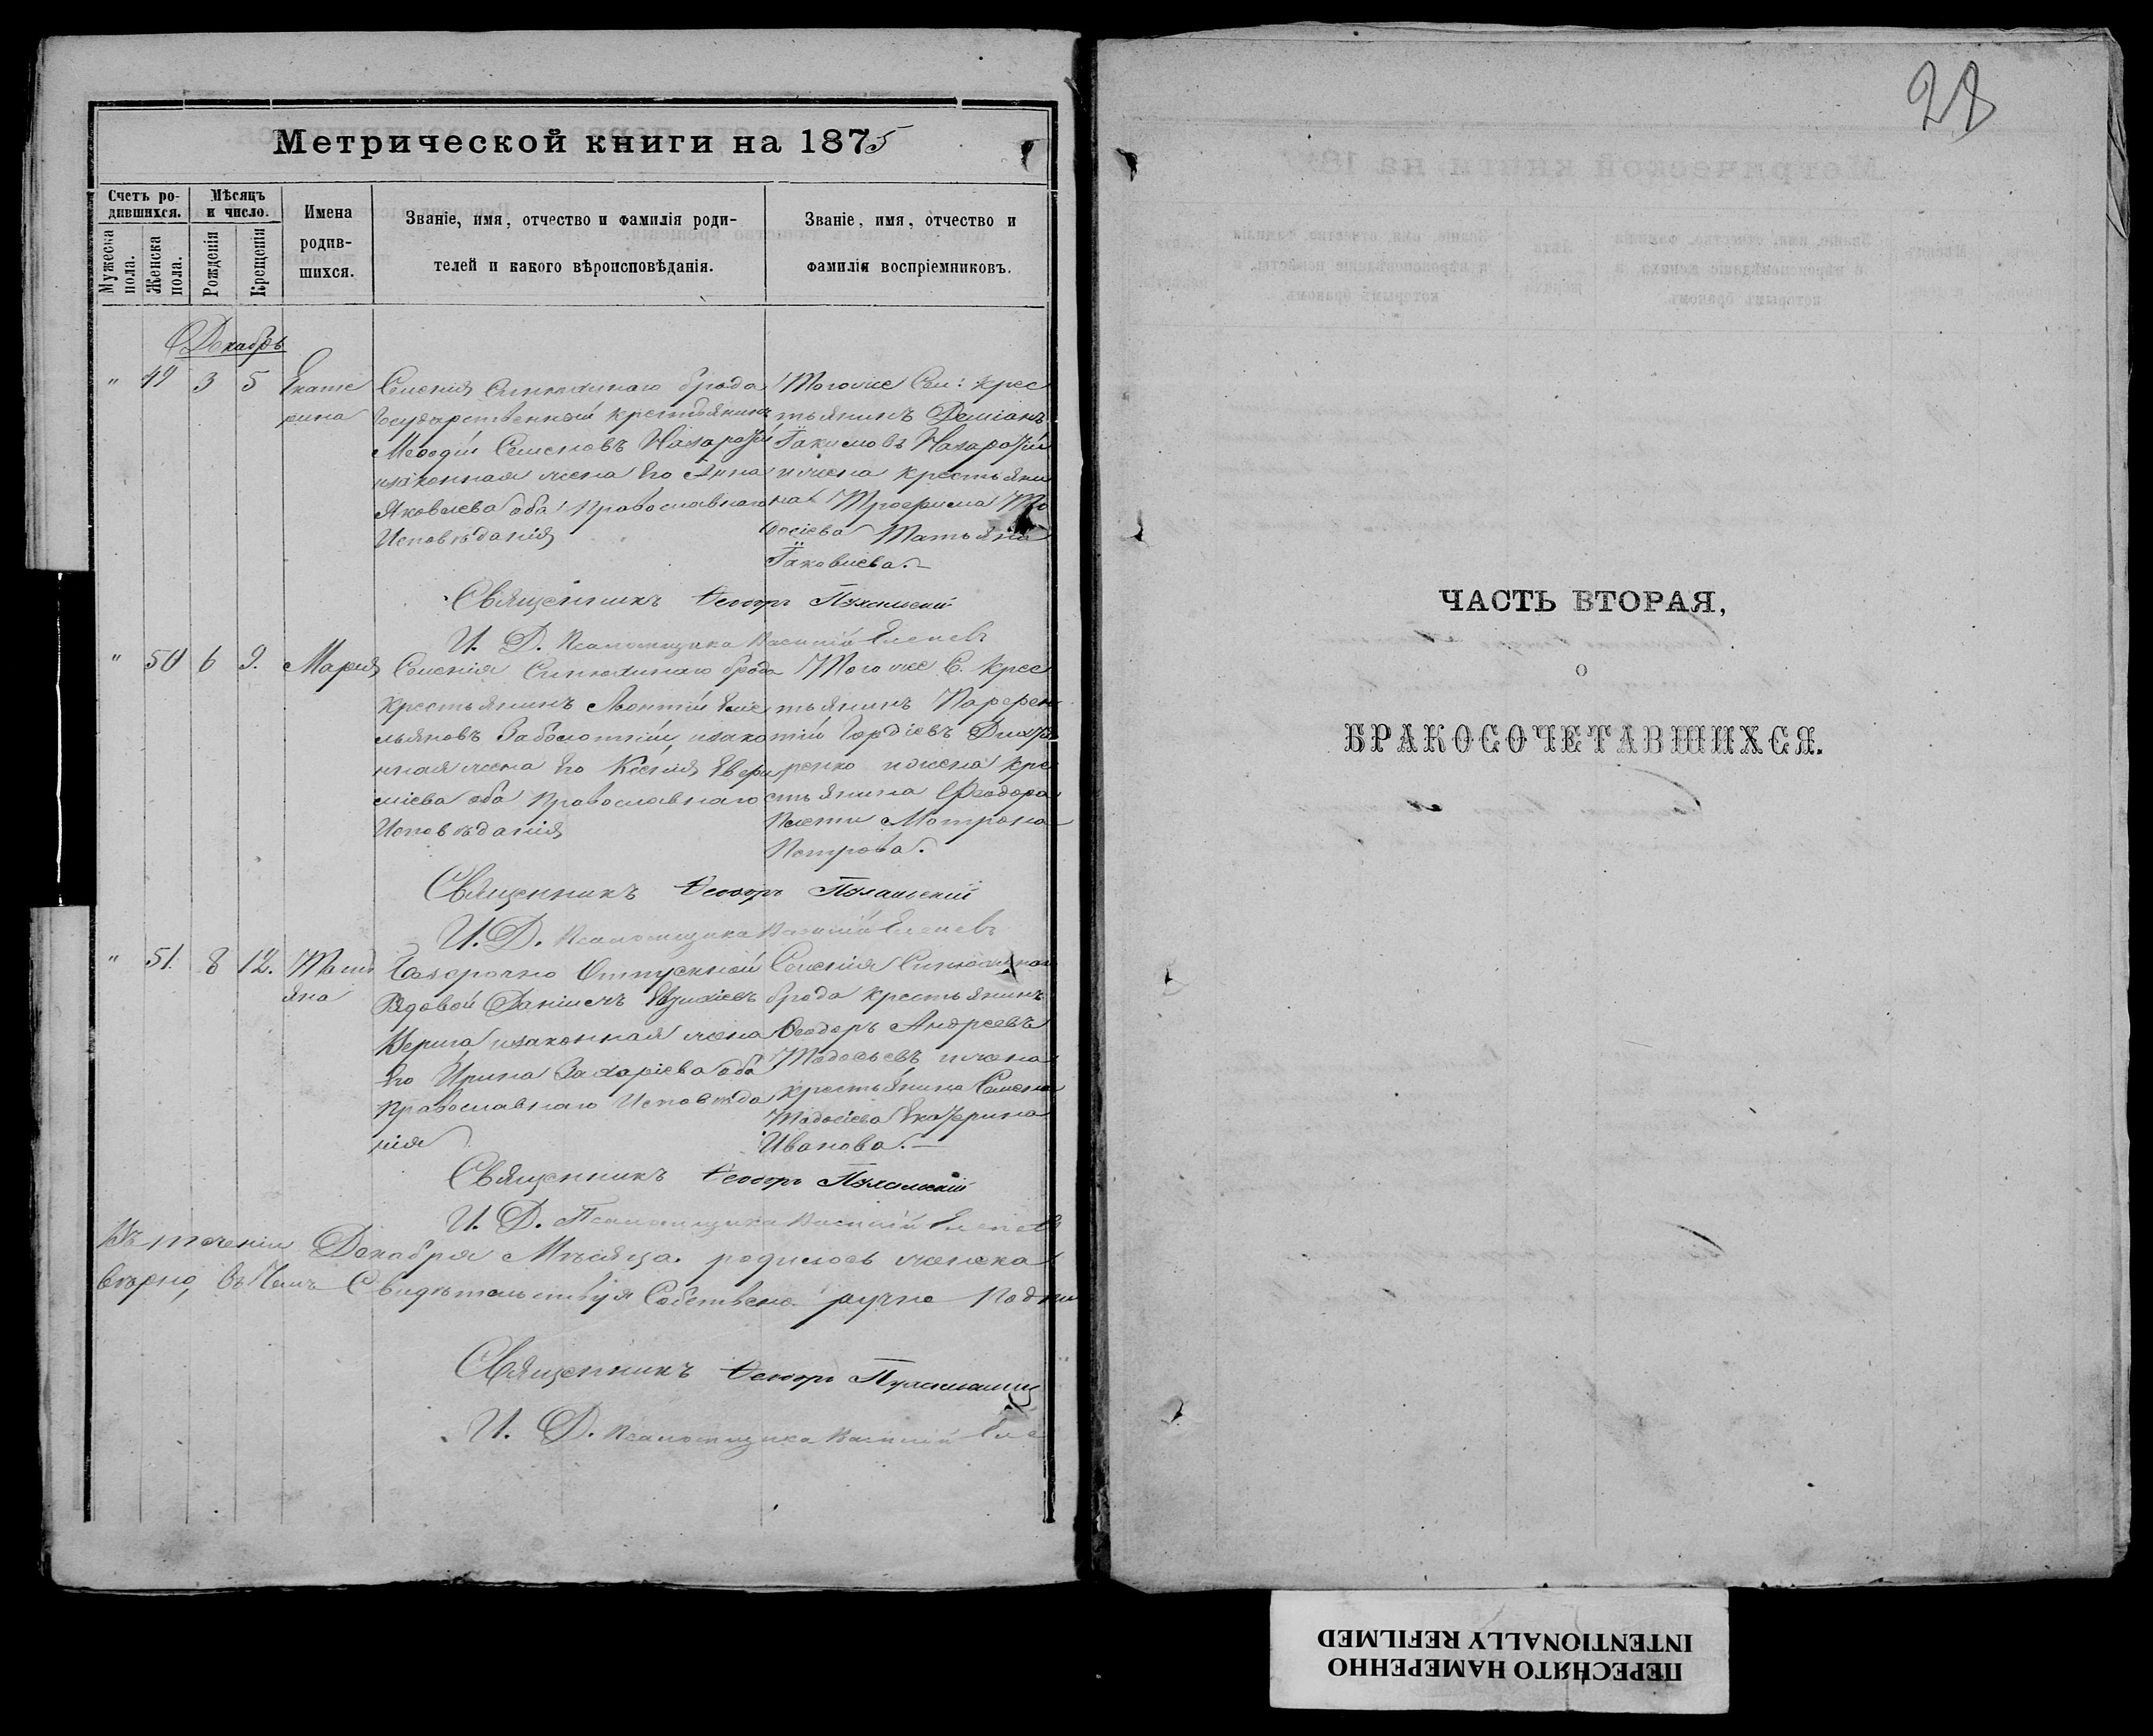 28
Метрической книги на 1875
Счетъ ро-
дившихся.
Мужеска пола.
Женска пола.
Мѣсяцъ
и число.
Рожденія
Крещенія
Имена
родив-
шихся.
Званіе, имя, отчество и фамилія роди-
телей и какого вѣроисповѣданія.
Званіе, имя, отчество и
фамилія воспріемниковъ.
Декабрь
" 49 3 5
Екате
рина
Селенія Синюхинаго брода
Государственный крестьянинъ
Меѳодій Семеновъ
изаконная жена его Анна
Яковлева оба православнаго
Исповѣданія
Тогоже Сел: крес
тьянинъ Деміанъ
Іакимовъ
ижена крестьяни
на Трофима
Татьяна
Іаковлева.
Священникъ Ѳеодоръ
И. Д. Псаломщика Василій
" 50 6 9.
Марія
Селенія Синюхинаго брода
крестьянинъ Леонтій Еме
льяновъ Заболотній, изако
нная жена его Ксенія
оба православнаго
Исповѣданія
Тогоже С. крес
тьянинъ Парфен
тій Гордіевъ
ижена кре
стьянина Феодора
Матрона
Петрова.
Священникъ Ѳеодоръ
И. Д. Псаломщика Василій
" 51. 8 12.
Тать
яна
Отпускной
Рядовой Даніилъ
изаконная жена
его Ирина Захаріева оба
православнаго Исповѣда
нія
Селенія
брода крестьянинъ
Ѳеодоръ Андреевъ
ижена
крестьянина Семена
Екатерина
Иванова.
Священникъ Ѳеодоръ
И. Д. Псаломщика Василій
Въ теченіи Декабря Мѣсяца. родилось женска
вѣрно, въ чемъ Свидѣтельствуя Собственно ручно подпи
Священникъ Ѳеодоръ
И. Д. Псаломщика Василій
ЧАСТЬ ВТОРАЯ,
О
БРАКОСОЧЕТАВШИХСЯ.
ПЕРЕСНЯТО НАМЕРЕННО
INTENTIONALLY REFILMED